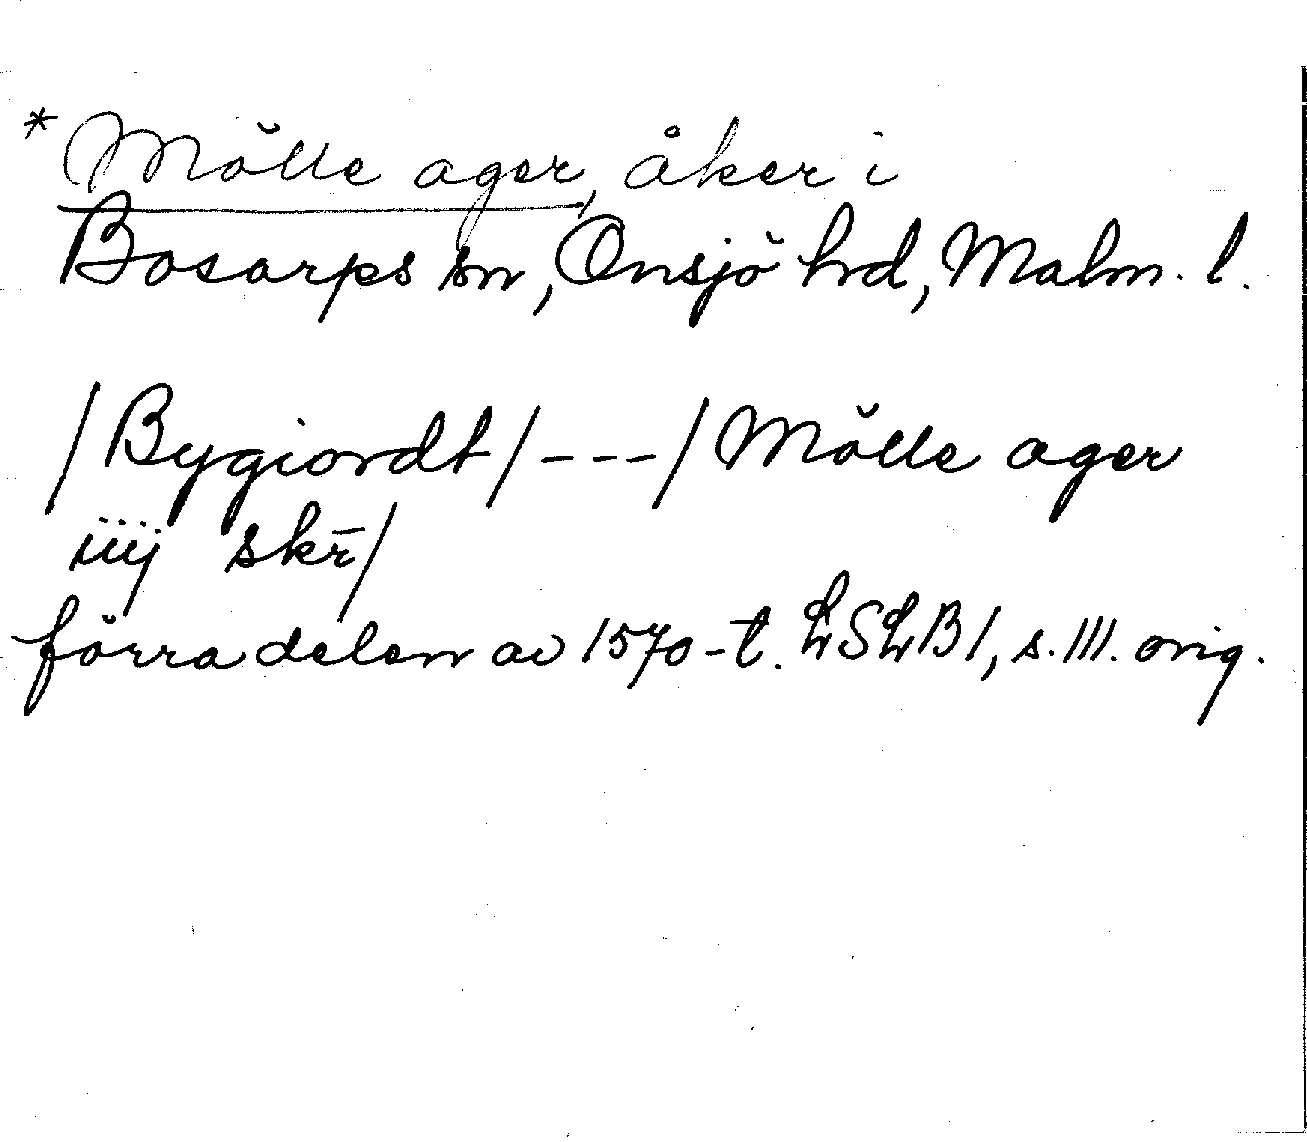 *Mölle ager, åker i
Bosarps sn, Onsjö hd, Malm. l.
/Bygiordt/---/Mölle ager
iiij skr̄/
förra delen av 1570-t. LSLB 1, s. 111. orig.